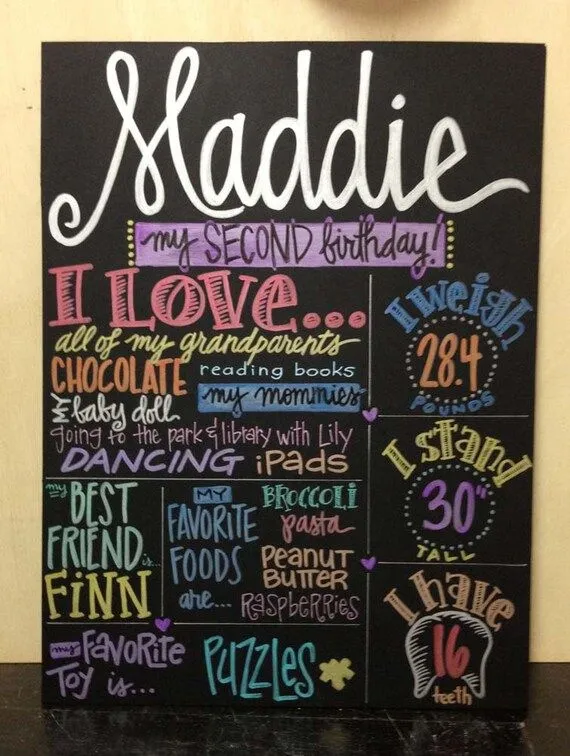 Maddie
my SECOND birthday!
I LOVE...
all of my grandparents
CHOCOLATE reading books
my baby doll my mommies
going to the park & library with Lily
DANCING iPads
my BEST
FRIEND is...
FiNN
MY
FAVORITE
FOODS
are...
BROCCOLi
pasta
PEANUT
BUTTER
RASPBERRiES
my FAVORiTE
TOY is...
PUZZLES
I weigh
28.4
POUNDS
I stand
30"
TALL
I have
16
teeth